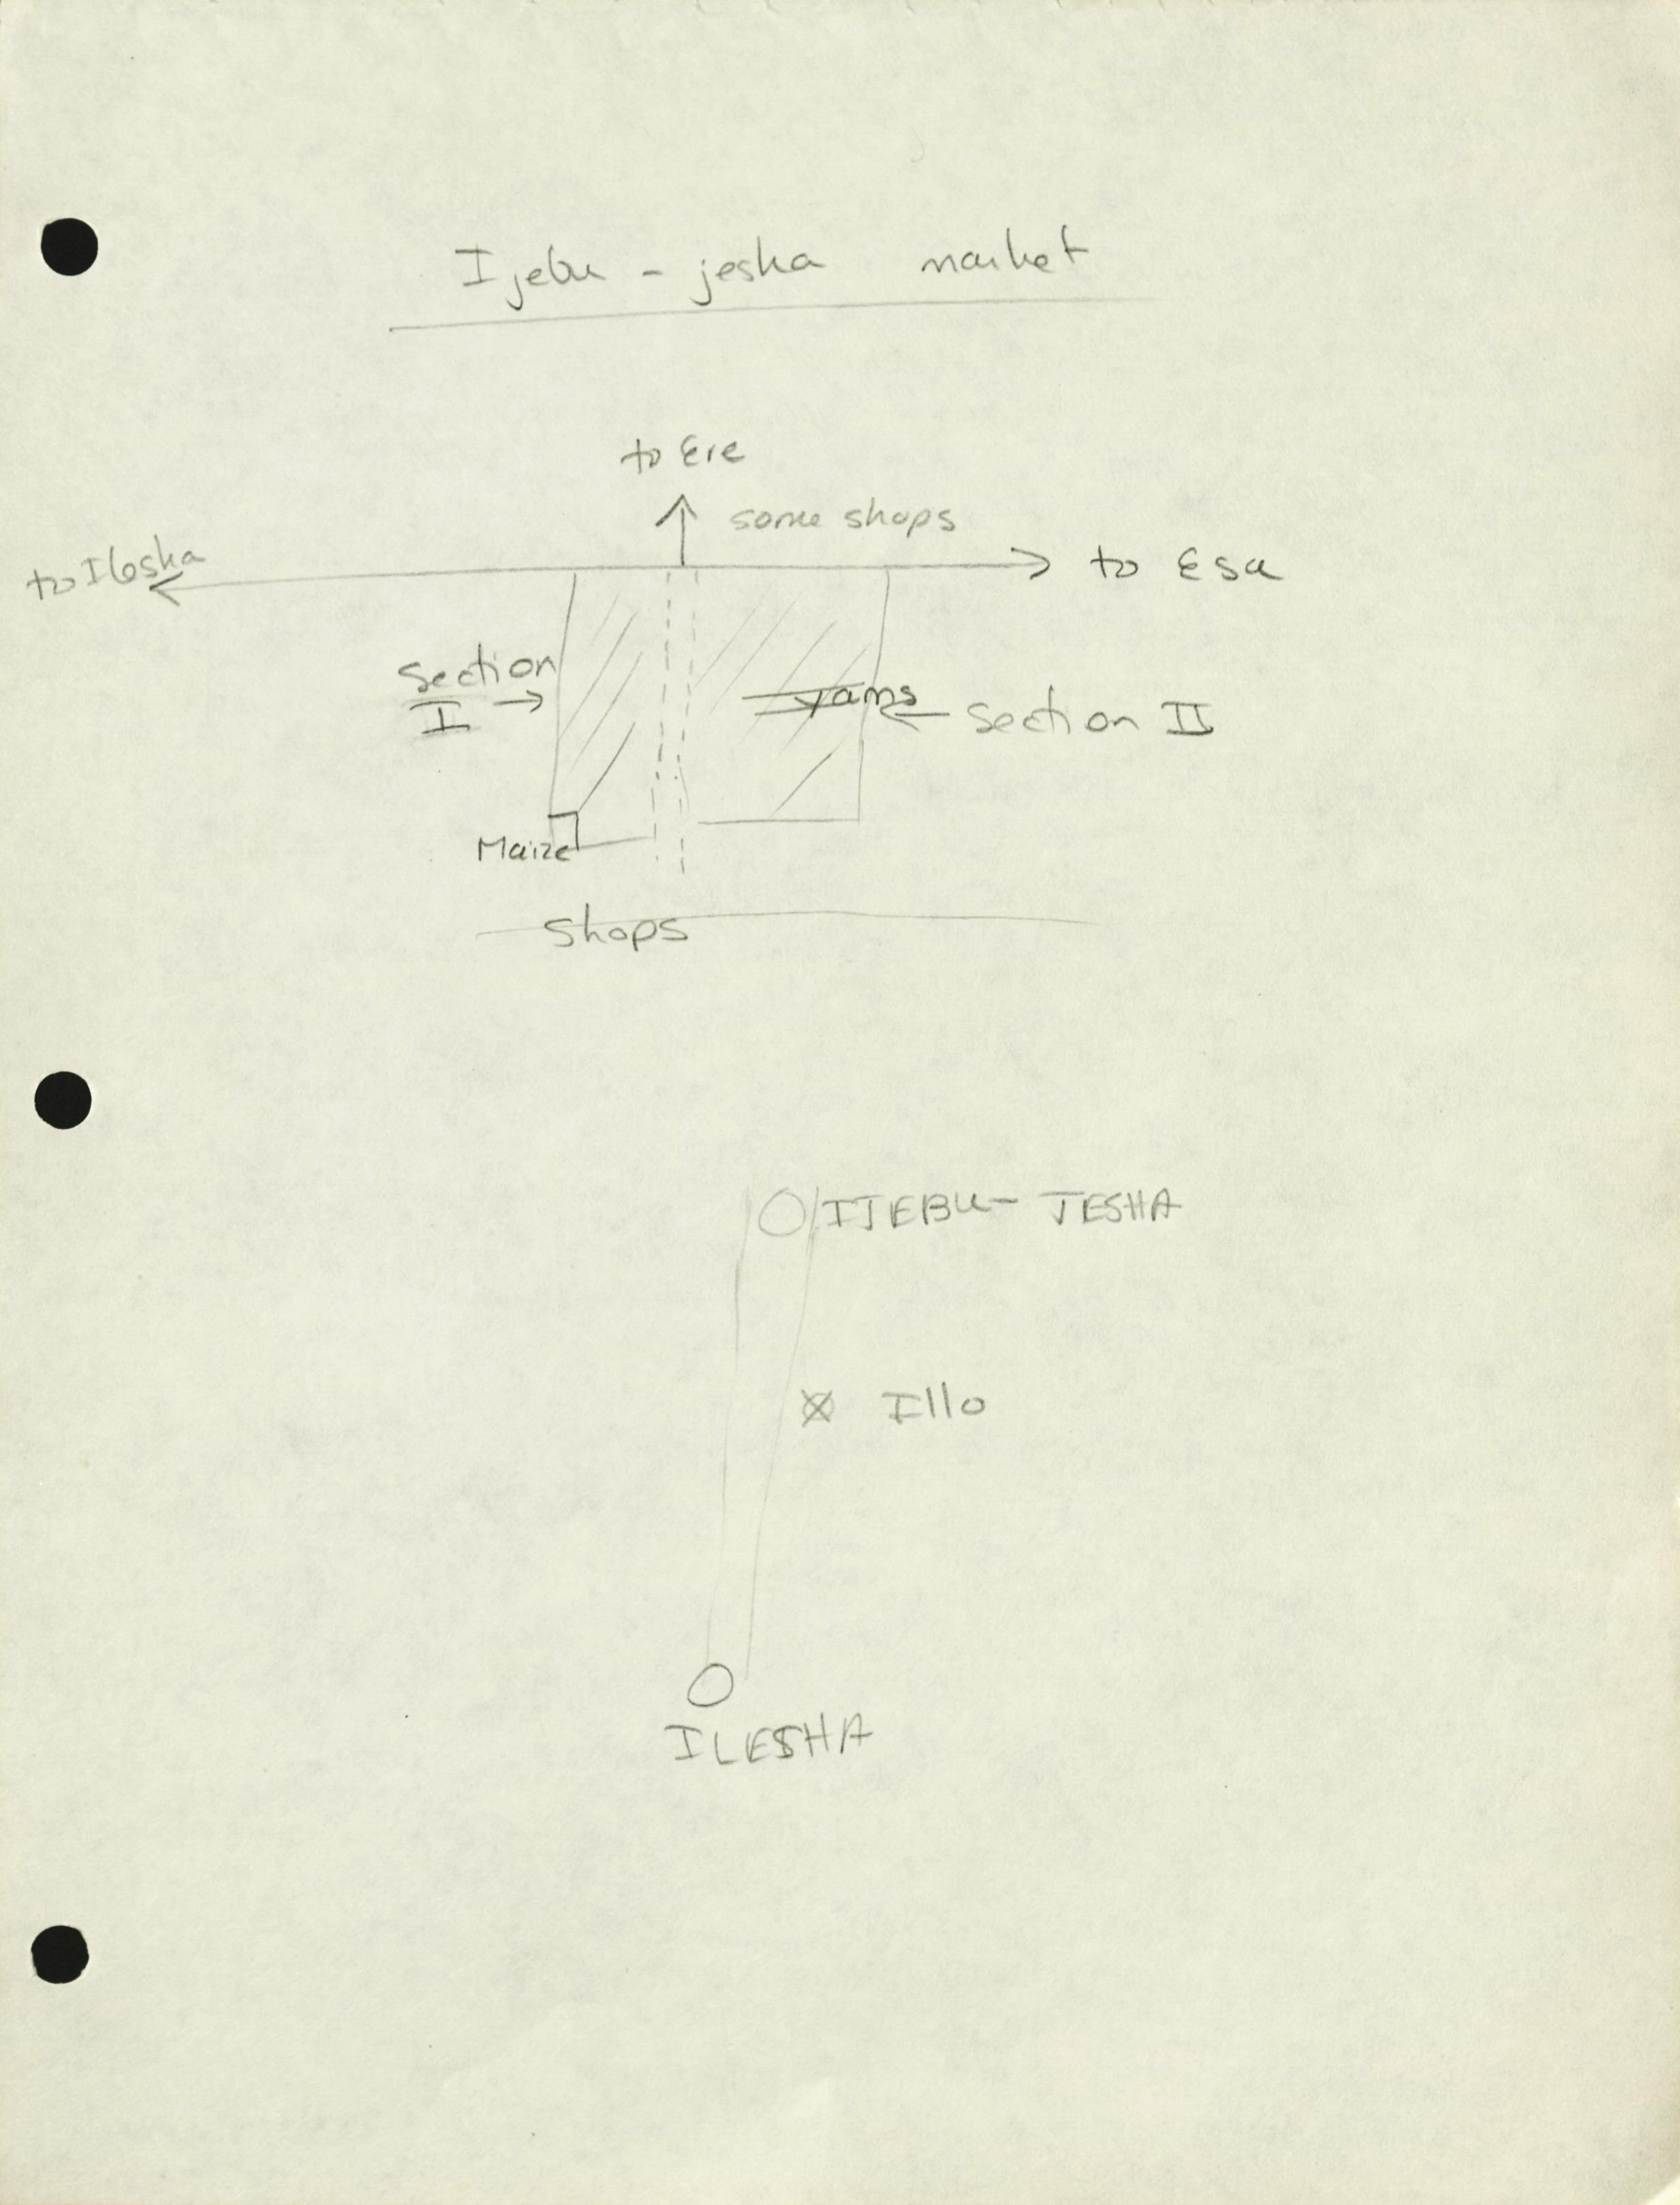 Ijebu - jesha market
to Ere
some shops
to Ilesha
to Esa
Section
I
yams
Section II
Maize
shops
IJEBU- JESHA
Illo
ILESHA